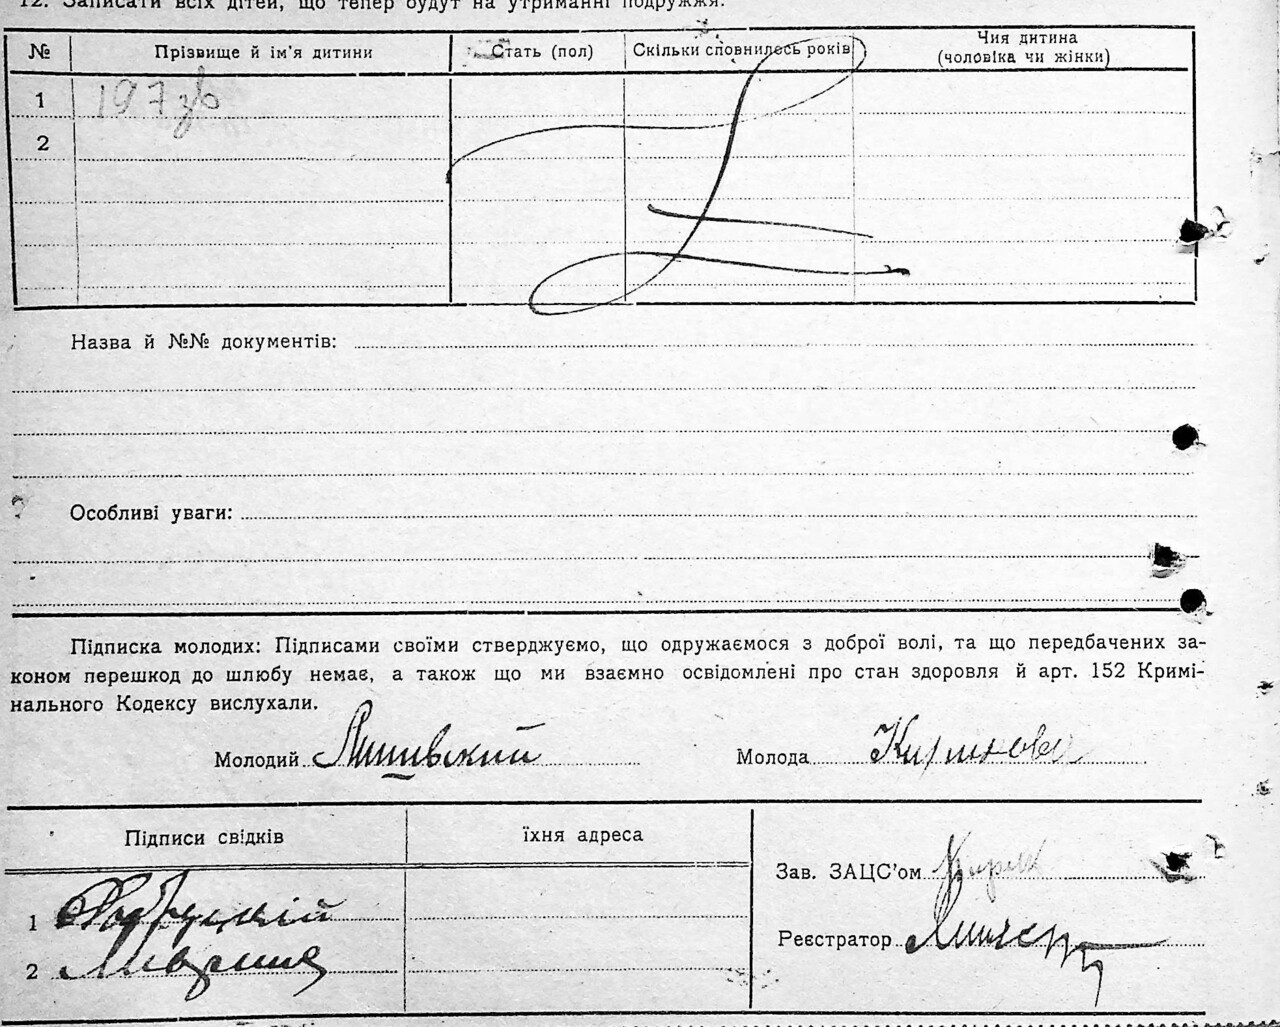 12. Записати всіх дітей, що тепер будут на утриманні подружжя.
№ Прізвище й ім'я дитини Стать (пол) Скільки сповнилось років Чия дитина
(чоловіка чи жінки)
1 197 зв
2
Назва й №№ документів:
Особливі уваги:
Підписка молодих: Підписами своїми стверджуємо, що одружаємося з доброї волі, та що передбачених за-
коном перешкод до шлюбу немає, а також що ми взаємно освідомлені про стан здоровля й арт. 152 Кримі-
нального Кодексу вислухали.
Молодий Молода
Підписи свідків їхня адреса
Зав. ЗАЦС'ом
1
Реєстратор
2